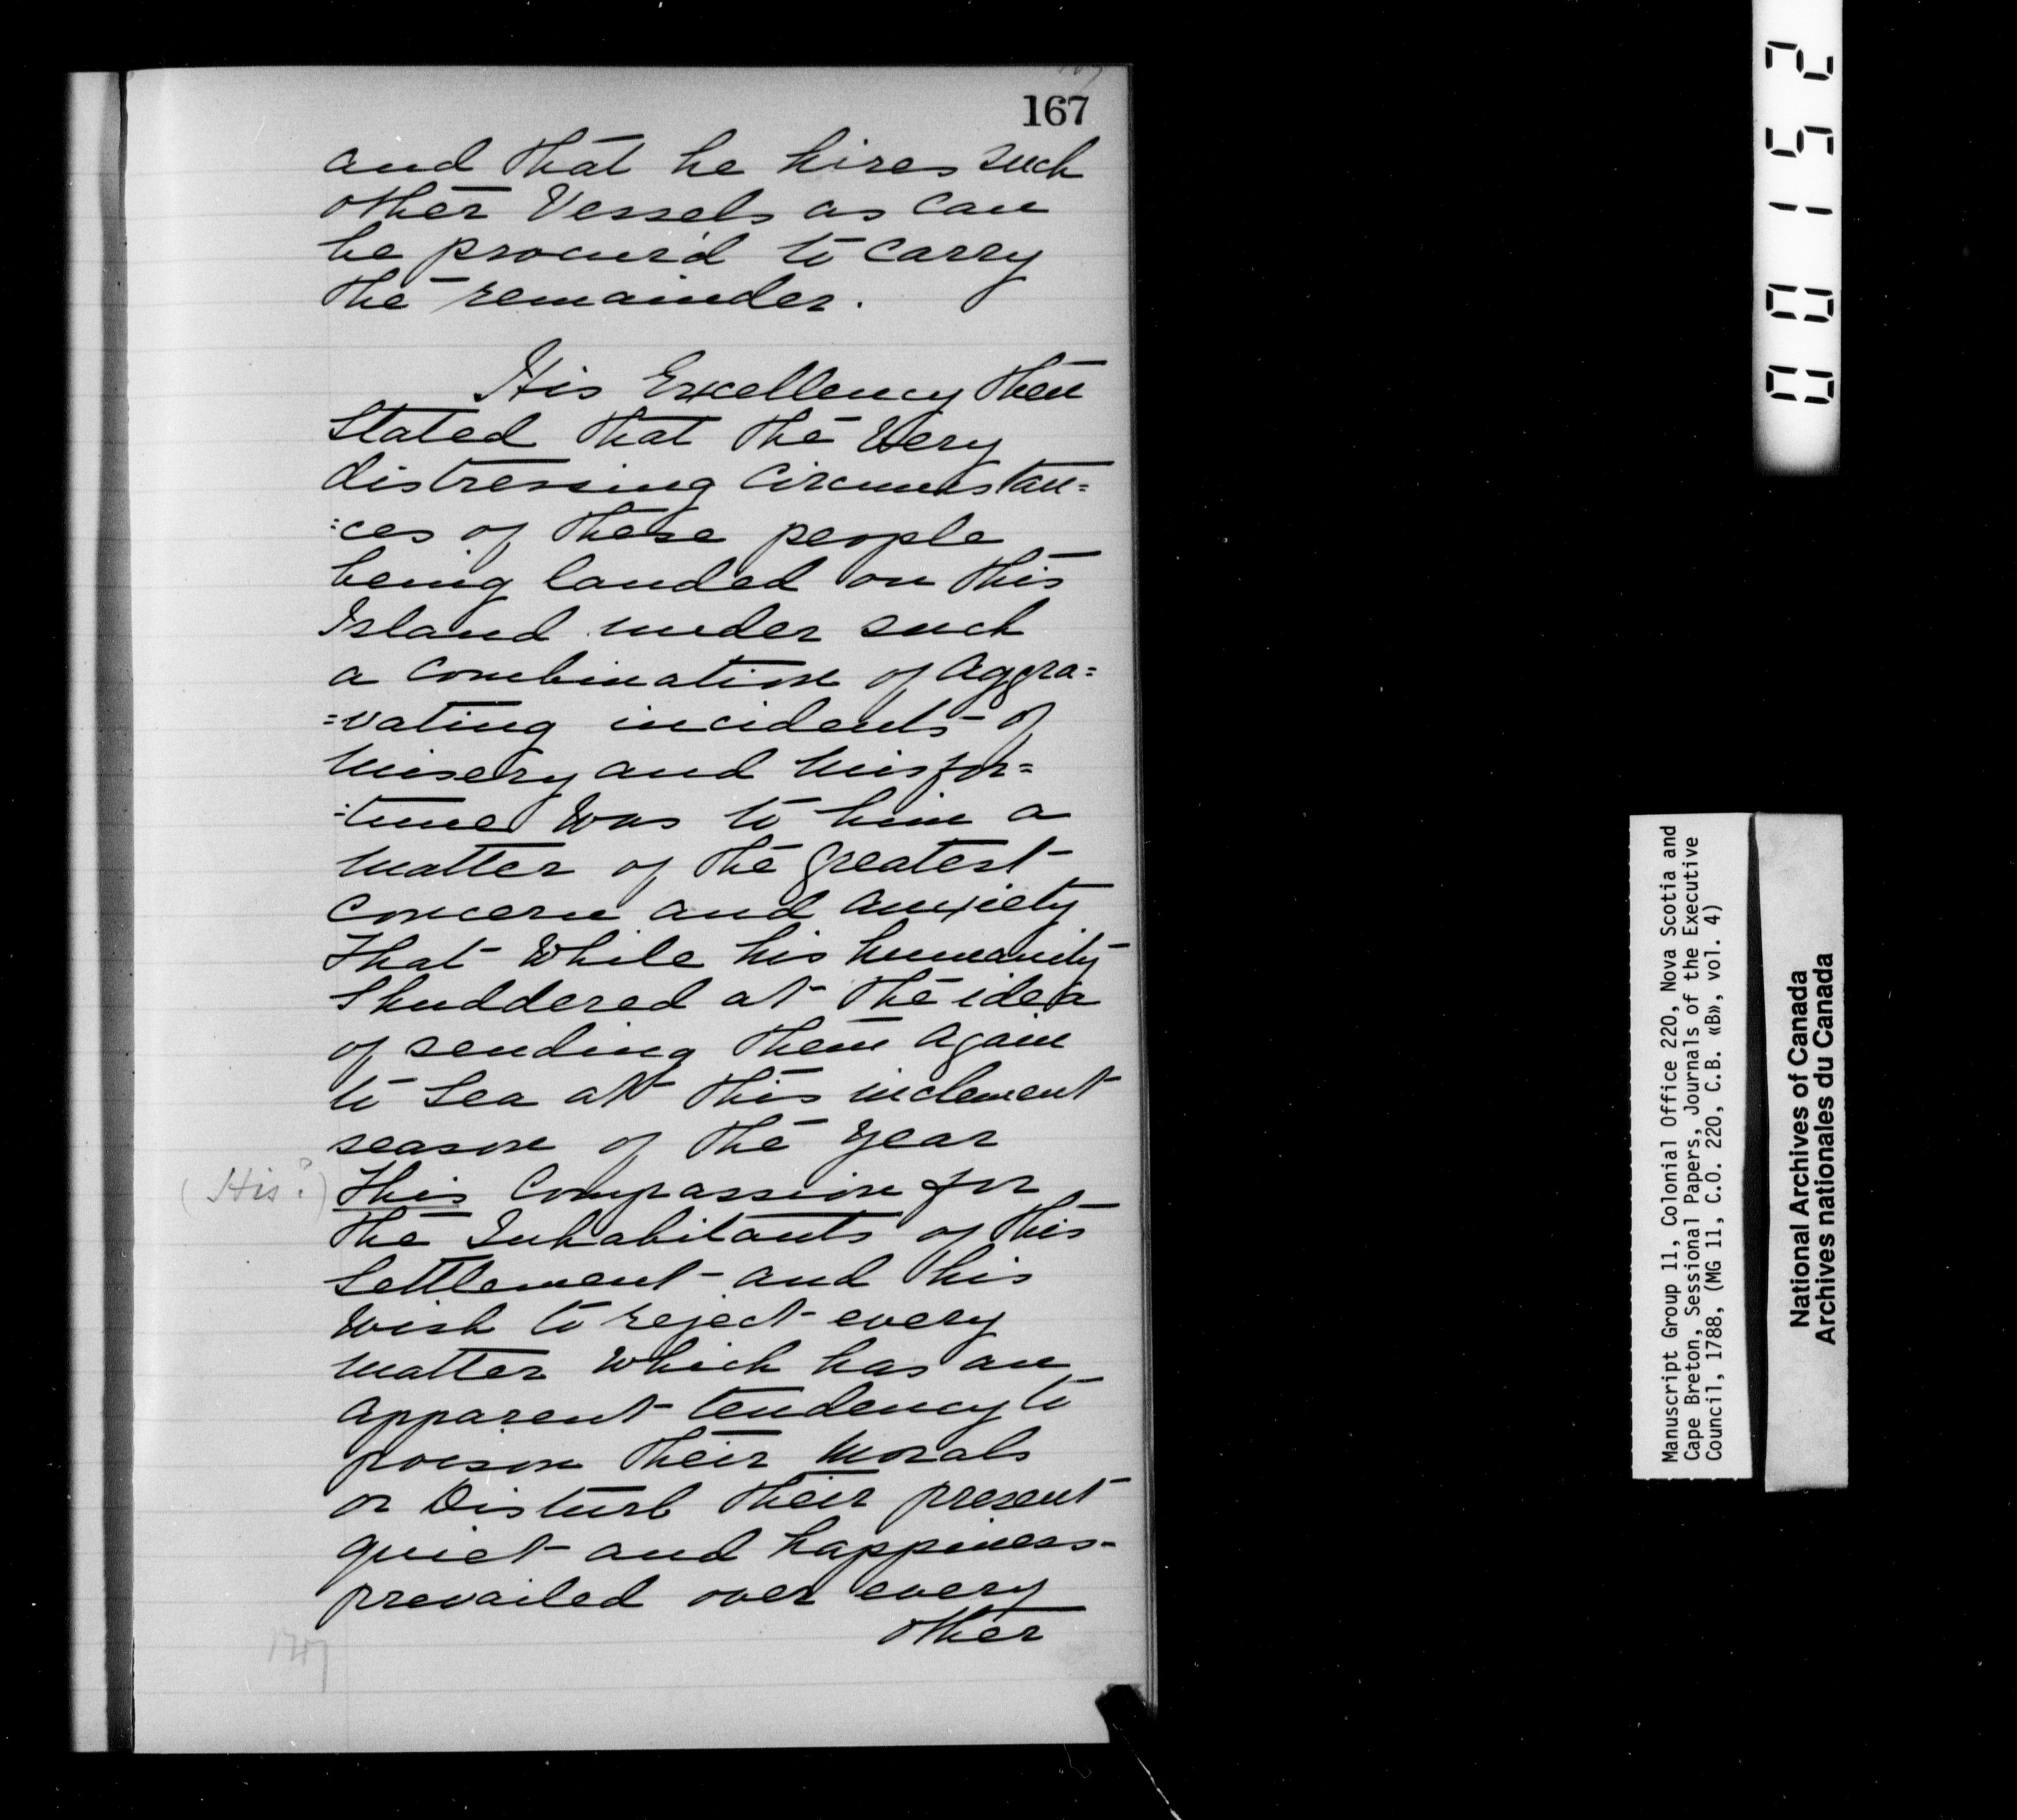 167
and that he hires such
other Vessels as can
be procur'd to carry
the remainder.
His Excellency then
Stated that the Very
distressing Circumstan=
=ces of these people
being landed on this
Island under such
a Combination of Aggra=
=vating incidents of
Misery and Misfor=
=tune Was to him a
Matter of the Greatest
Concern and Anxiety
That While his humanity
Shuddered at the idea
of sending them Again
to Sea at this inclement
season of the Year
(His?) This Compassion for
the Inhabitants of this
Settlement and his
Wish to reject every
Matter Which has an
Apparent tendency to
poison their Morals
or Disturb their present
quiet and happiness-
prevailed over every
other
00152
Manuscript Group 11, Colonial Office 220, Nova Scotia and
Cape Breton, Sessional Papers, Journals of the Executive
Council, 1788, (MG 11, C.O. 220, C.B. «B», vol. 4)
National Archives of Canada
Archives nationales du Canada